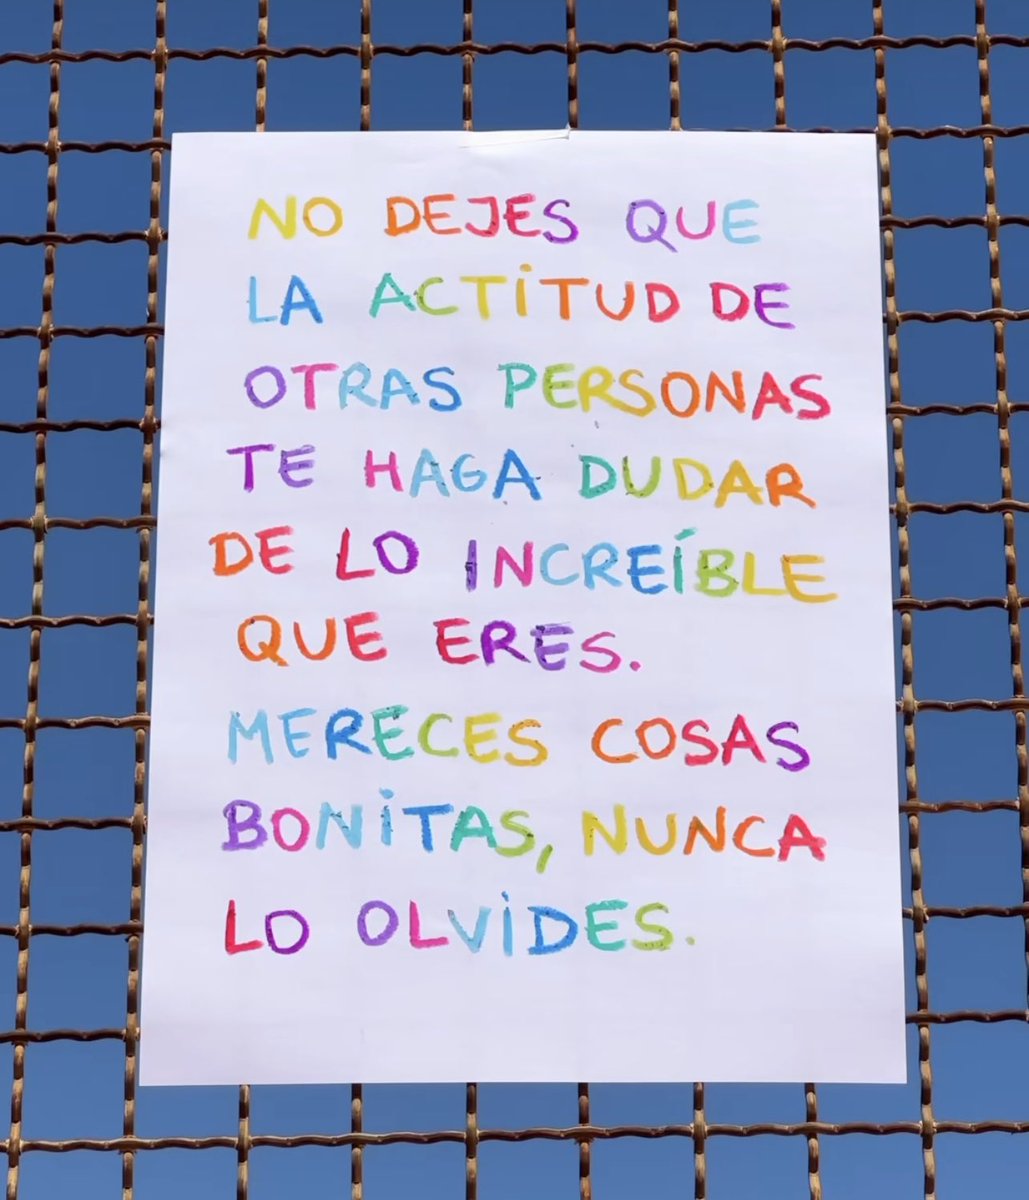 NO DEJES QUE
LA ACTITUD DE
OTRAS PERSONAS
TE HAGA DUDAR
DE LO INCREÍBLE
QUE ERES.
MERECES COSAS
BONITAS, NUNCA
LO OLVIDES.